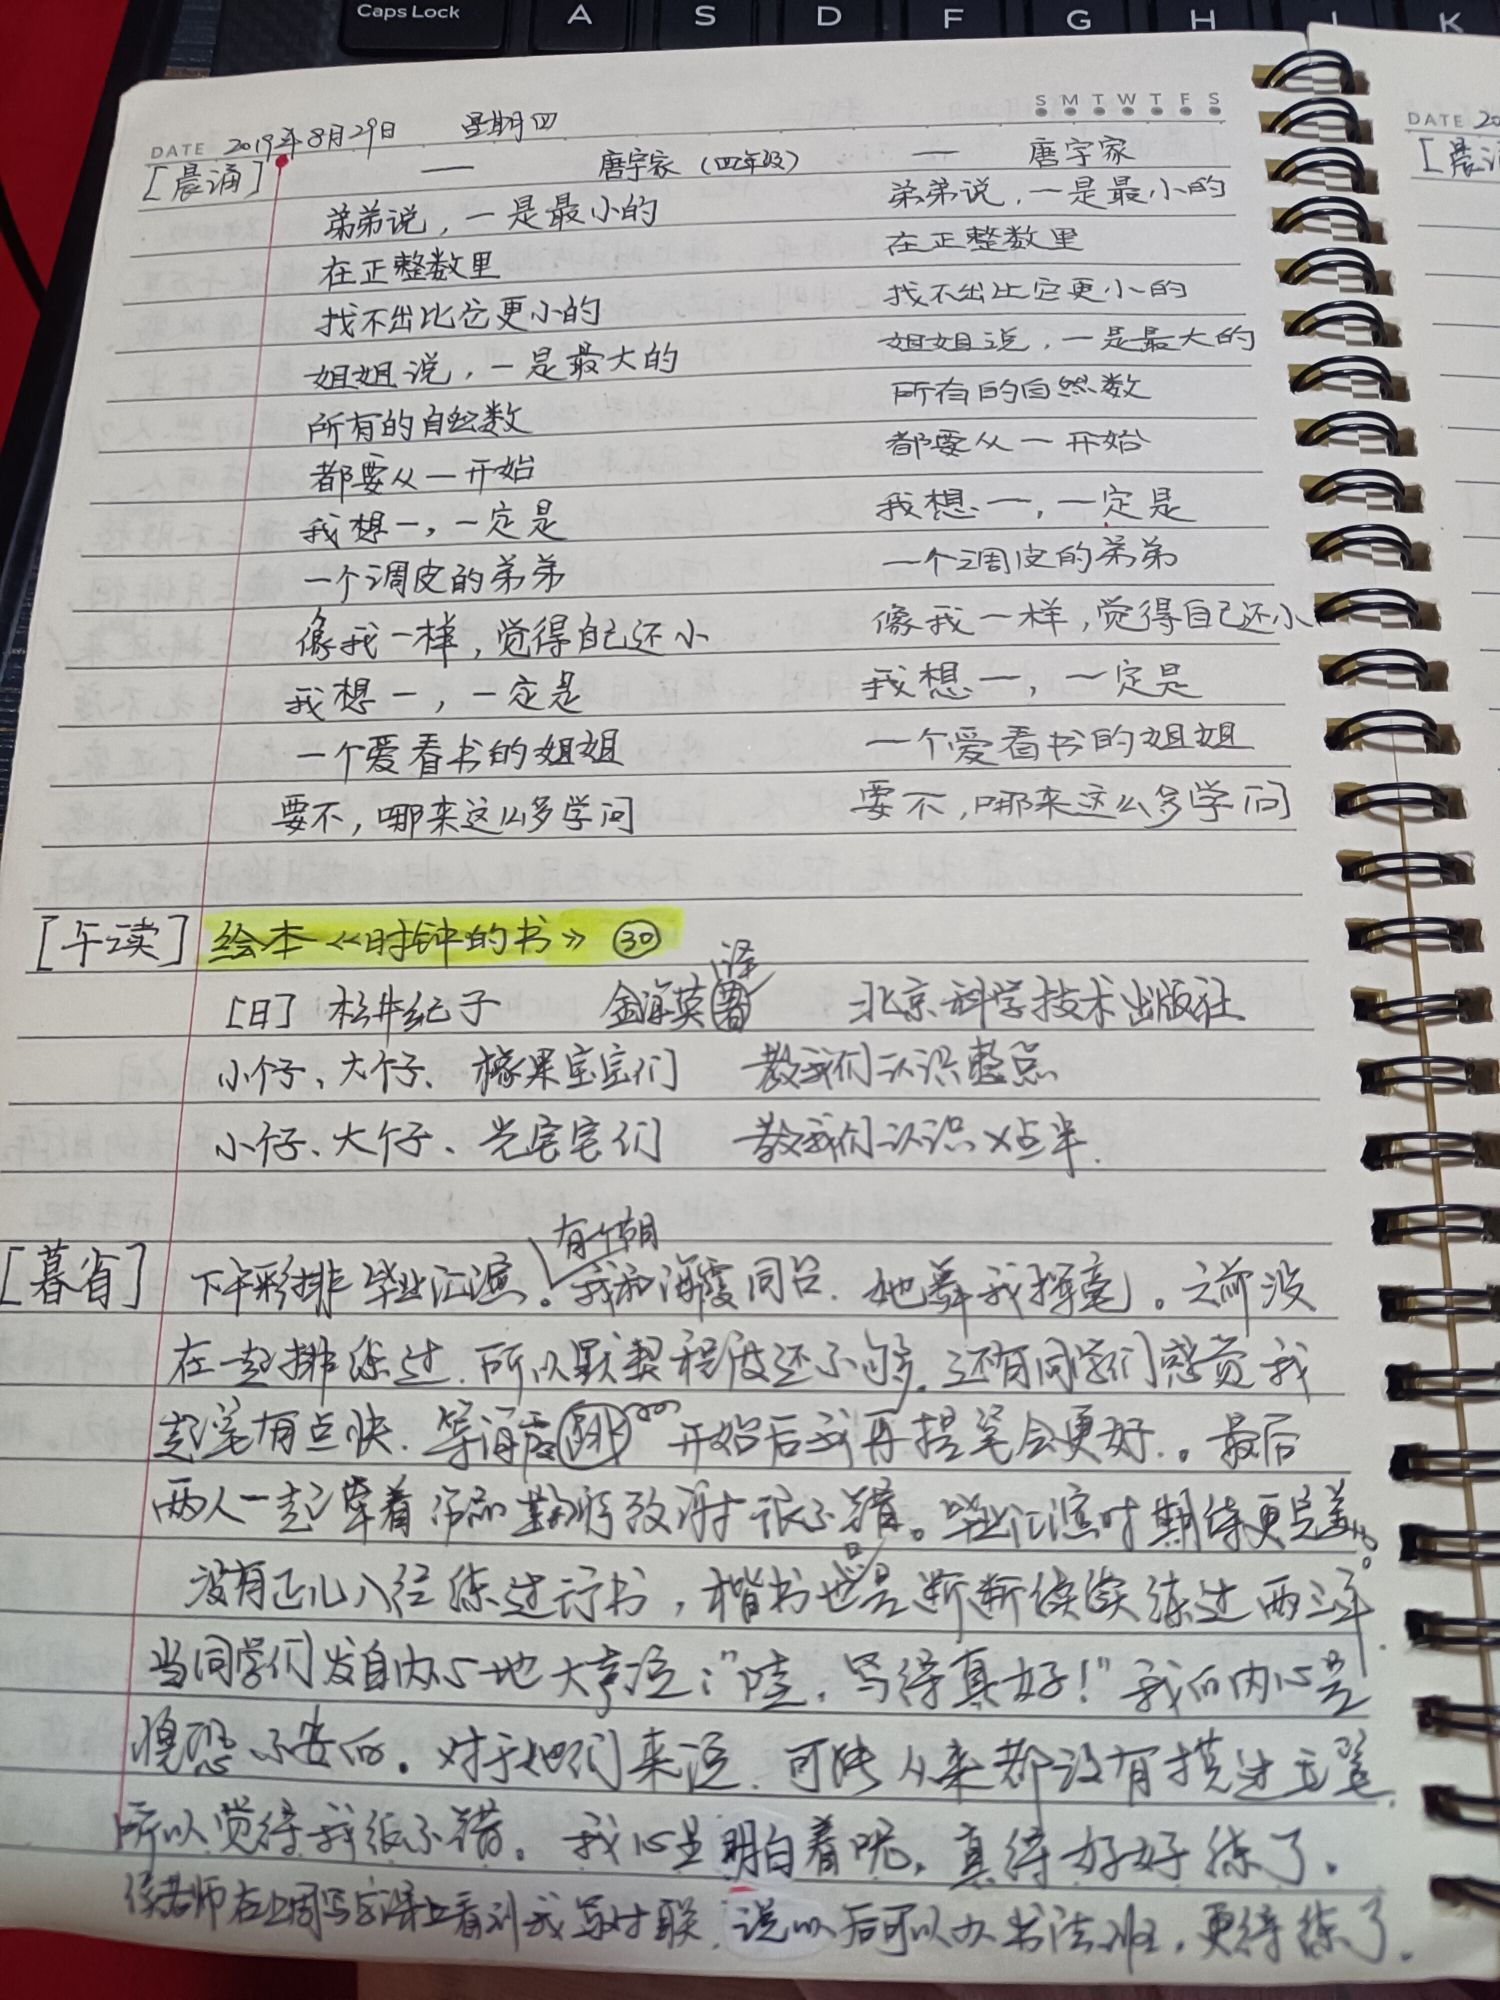 Caps Lock
A S D F G H J K
S M T W T F S
DATE 2019年8月29日 星期四
DATE 20
[晨诵] 一 唐宇家(四年级)
弟弟说，一是最小的
在正整数里
找不出比它更小的
姐姐说，一是最大的
所有的自然数
都要从一开始
我想一，一定是
一个调皮的弟弟
像我一样，觉得自己还小
我想一，一定是
一个爱看书的姐姐
要不，哪来这么多学问
一 唐宇家
弟弟说，一是最小的
在正整数里
找不出比它更小的
姐姐说，一是最大的
所有的自然数
都要从一开始
我想一，一定是
一个调皮的弟弟
像我一样，觉得自己还小
我想一，一定是
一个爱看书的姐姐
要不，哪来这么多学问
[晨
[午读] 绘本《时钟的书》㉚
[日] 松井纪子 金海英译 北京科学技术出版社
小个子、大个子、橡果宝宝们 教我们认识整点
小个子、大个子、光宝宝们 教我们认识X点半.
[暮省] 下午彩排毕业汇演。有个节目我和海霞同台.她舞我挥毫。之前没
在一起排练过.所以默契程度还不够.还有同学们感觉我
起笔有点快.等海霞跳开始后我再提笔会更好.。最后
两人一起牵着作品鞠躬致谢才很不错。毕业汇演时期待更完美。
没有正儿八经练过行书，楷书也只是断断续续练过两三年.
当同学们发自内心地大声说："哇，写得真好！"我的内心是
惶恐不安的。对于她们来说.可能从来都没有摸过毛笔.
所以觉得我很不错。我心里明白着呢，真得好好练了。
侯老师在上周写字课上看到我写对联，说以后可以办书法班，更得练了.